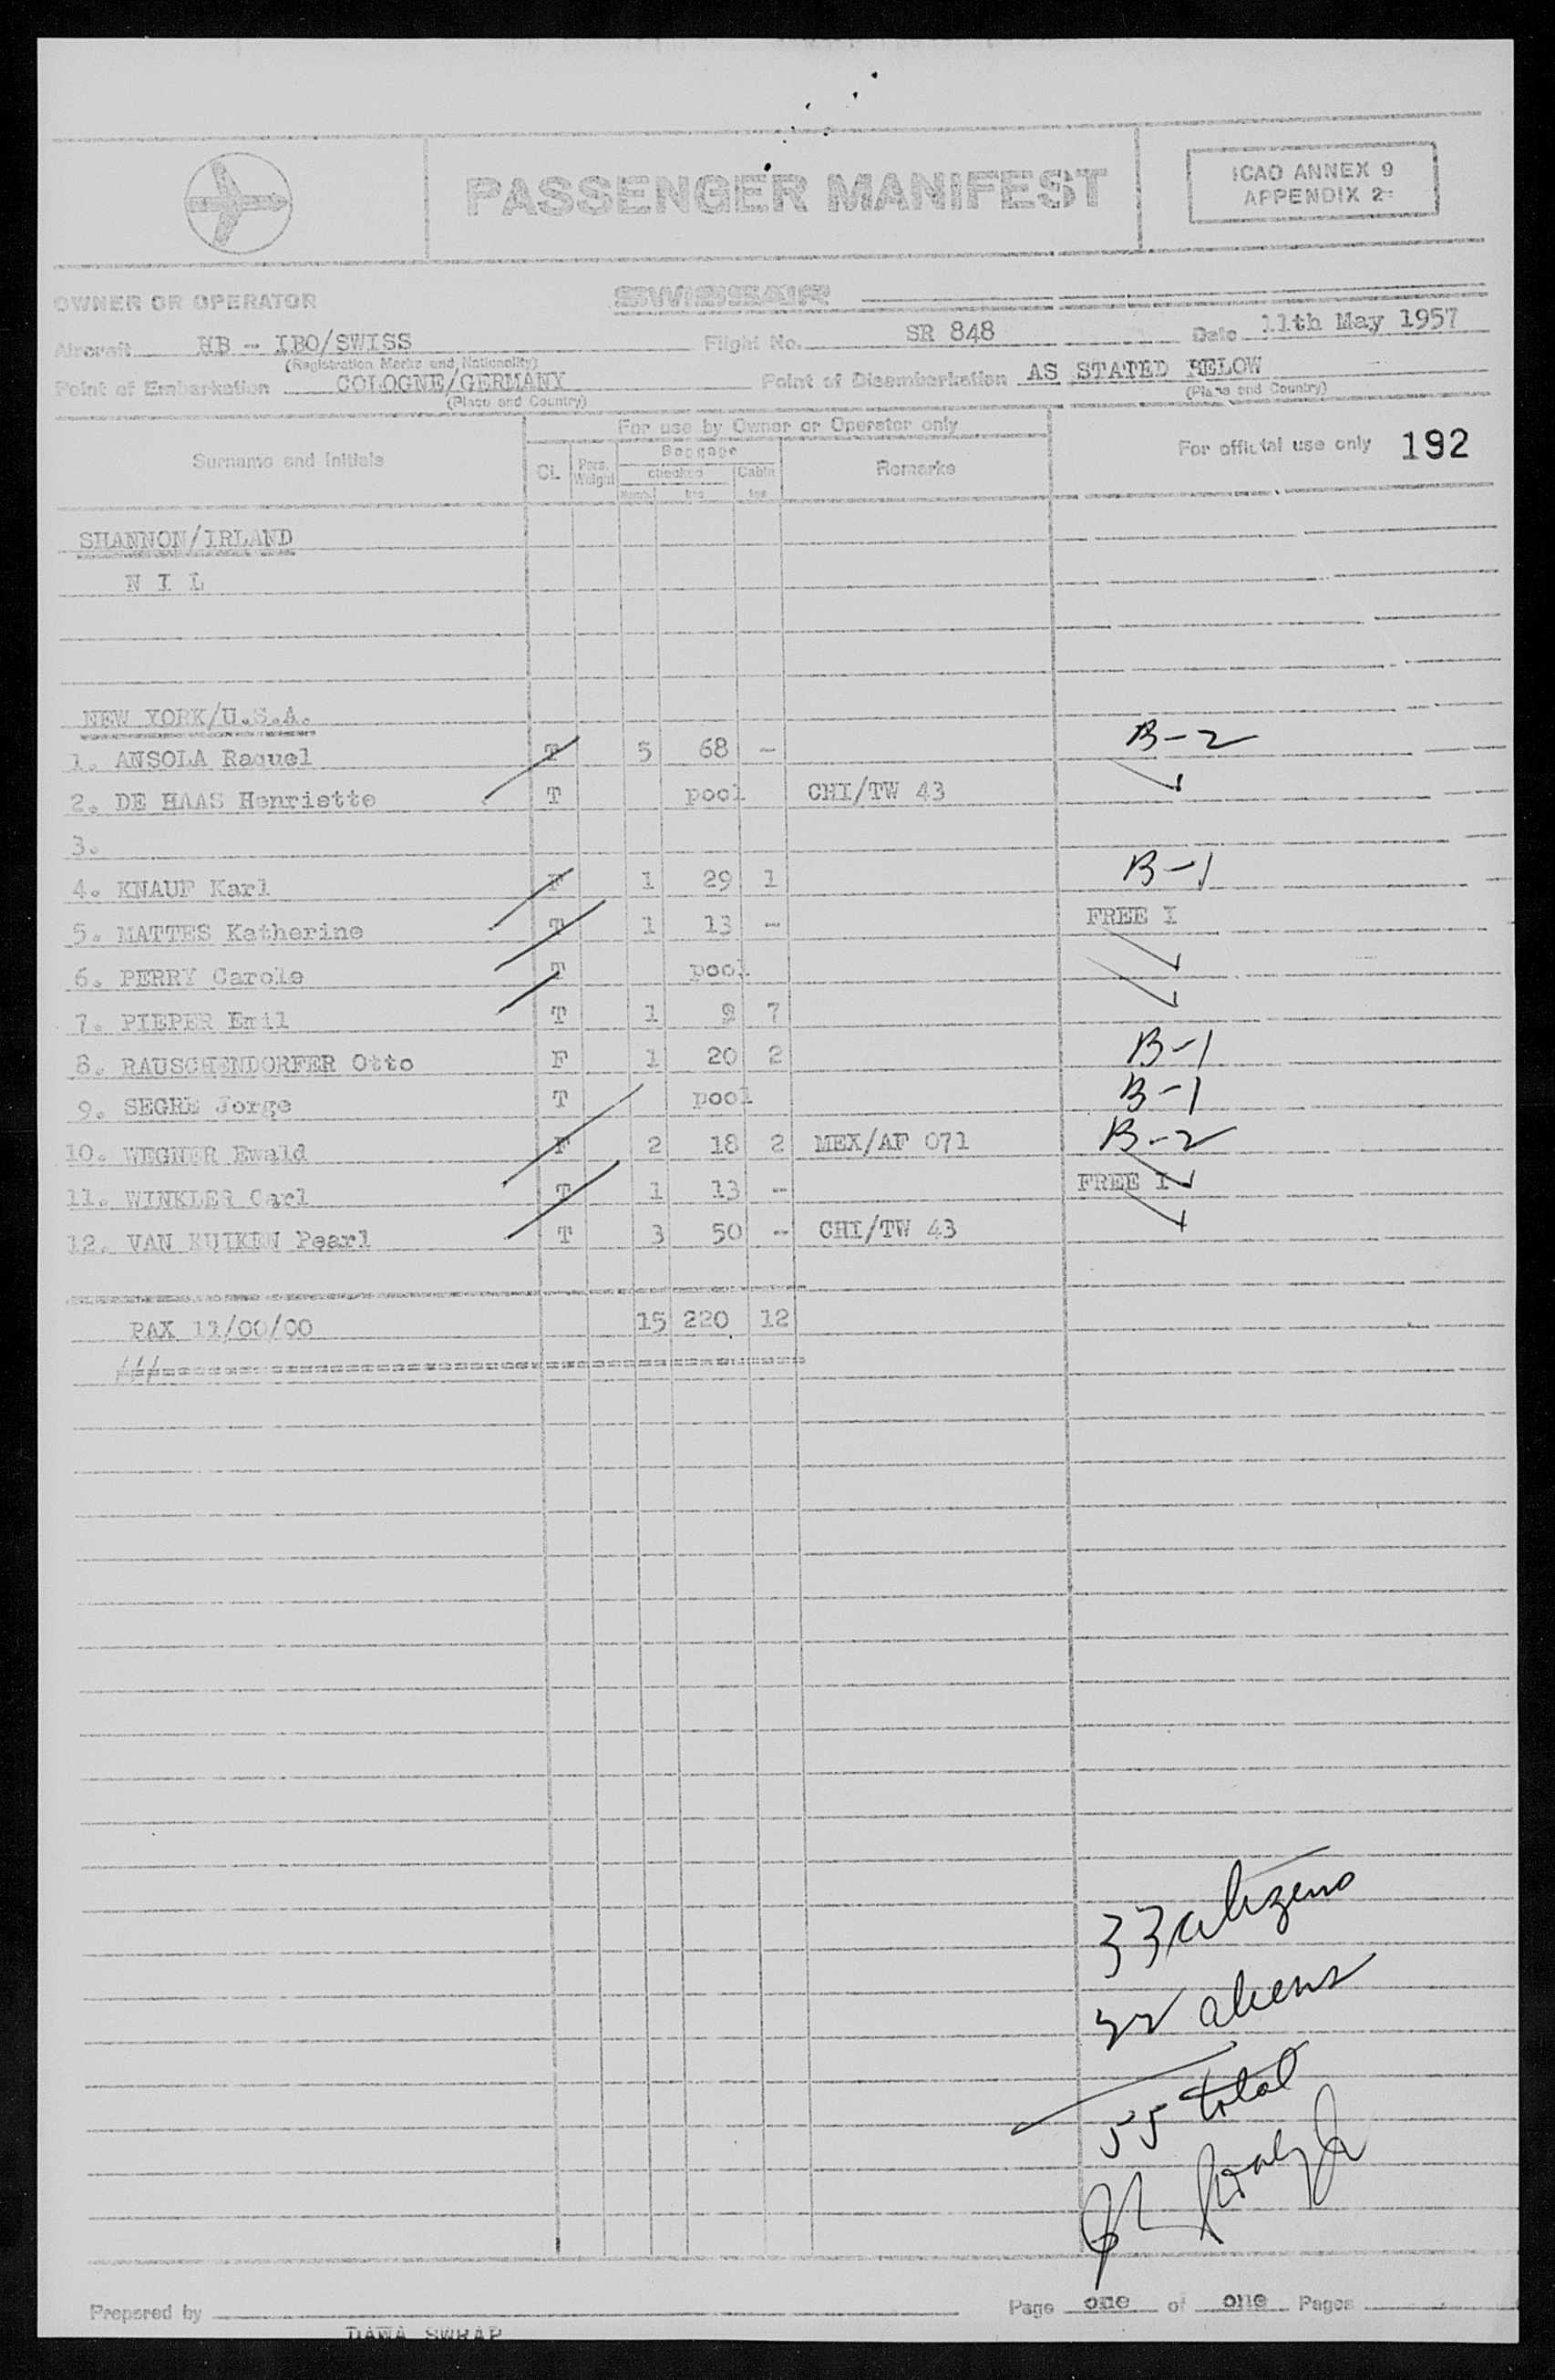 PASSENGER MANIFEST
ICAO ANNEX 9
APPENDIX 2
OWNER OR OPERATOR SWISSAIR
Aircraft HB - IBO/SWISS Flight No. SR 848 Date 11th May 1957
(Registration Marks and Nationality)
Point of Embarkation COLOGNE/GERMANY Point of Disembarkation AS STATED BELOW
(Place and Country) (Place and Country)
For use by Owner or Operator only
Surname and Initials CL. Pers. Weight Baggage checked Numb. kgs Cabin kgs Remarks For official use only 192
SHANNON/IRLAND
N I L
NEW YORK/U.S.A.
1. ANSOLA Raquel T 5 68 - B-2
2. DE HAAS Henriette T pool CHI/TW 43
3.
4. KNAUF Karl F 1 29 1 B-1
5. MATTES Katherine T 1 13 - FREE I
6. PERRY Carole T pool
7. PIEPER Emil T 1 9 7
8. RAUSCHENDORFER Otto F 1 20 2 B-1
9. SEGRE Jorge T pool B-1
10. WEGNER Ewald F 2 18 2 MEX/AF 071 B-2
11. WINKLER Carl T 1 13 - FREE I
12. VAN KUIKEN Pearl T 3 50 - CHI/TW 43
PAX 11/00/00 15 220 12
33 citizens
22 aliens
55 total
Prepared by Page one of one Pages